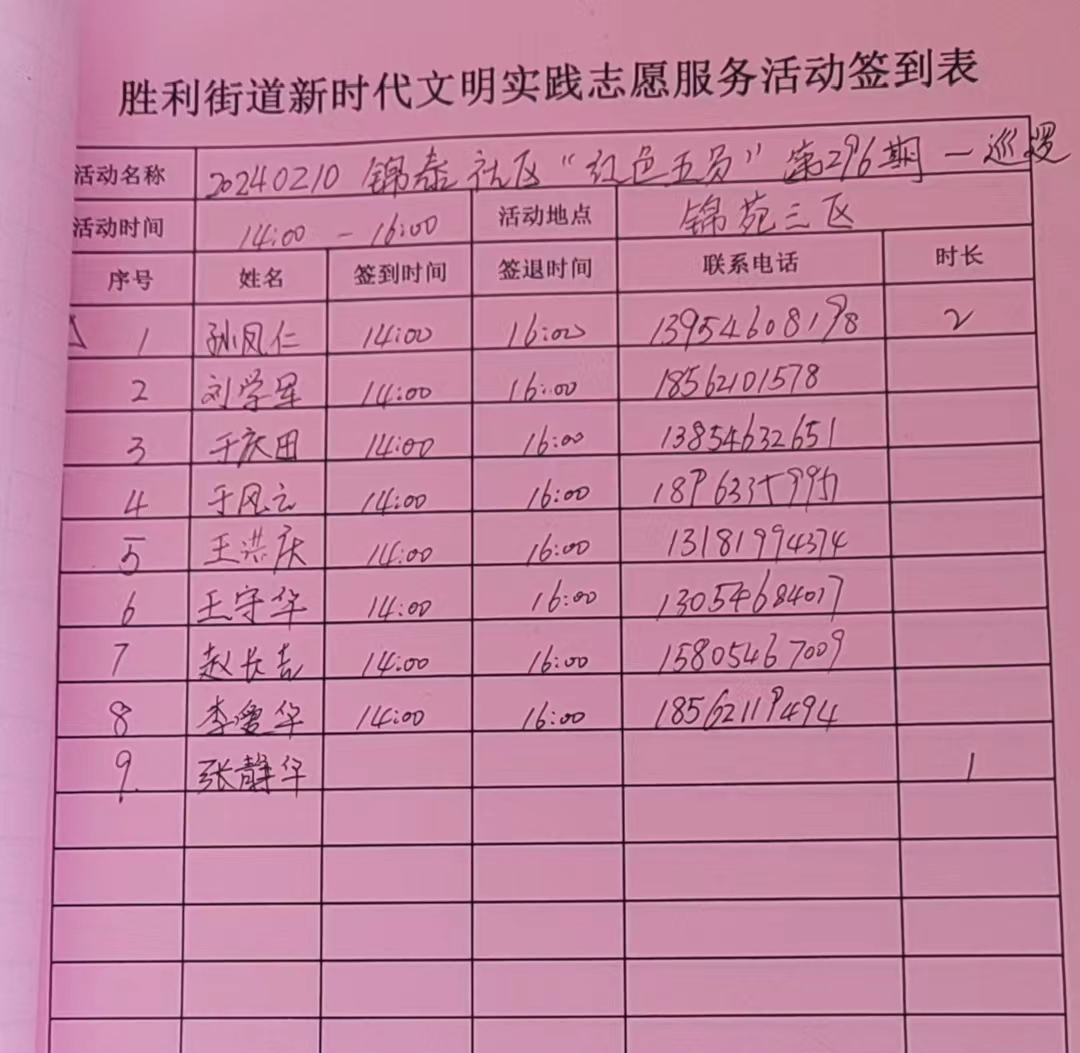 胜利街道新时代文明实践志愿服务活动签到表
活动名称 20240210 锦泰社区“红色五员”第296期一巡逻
活动时间 14:00 - 16:00 活动地点 锦苑三区
序号 姓名 签到时间 签退时间 联系电话 时长
1 孙凤仁 14:00 16:00 13954608198 2
2 刘学军 14:00 16:00 18562101578
3 于庆田 14:00 16:00 13854632651
4 于风云 14:00 16:00
5 王洪庆 14:00 16:00 13181994374
6 王守华 14:00 16:00 13054684017
7 赵长吉 14:00 16:00 15805467009
8 李爱华 14:00 16:00 18562119494
9. 张静华 1